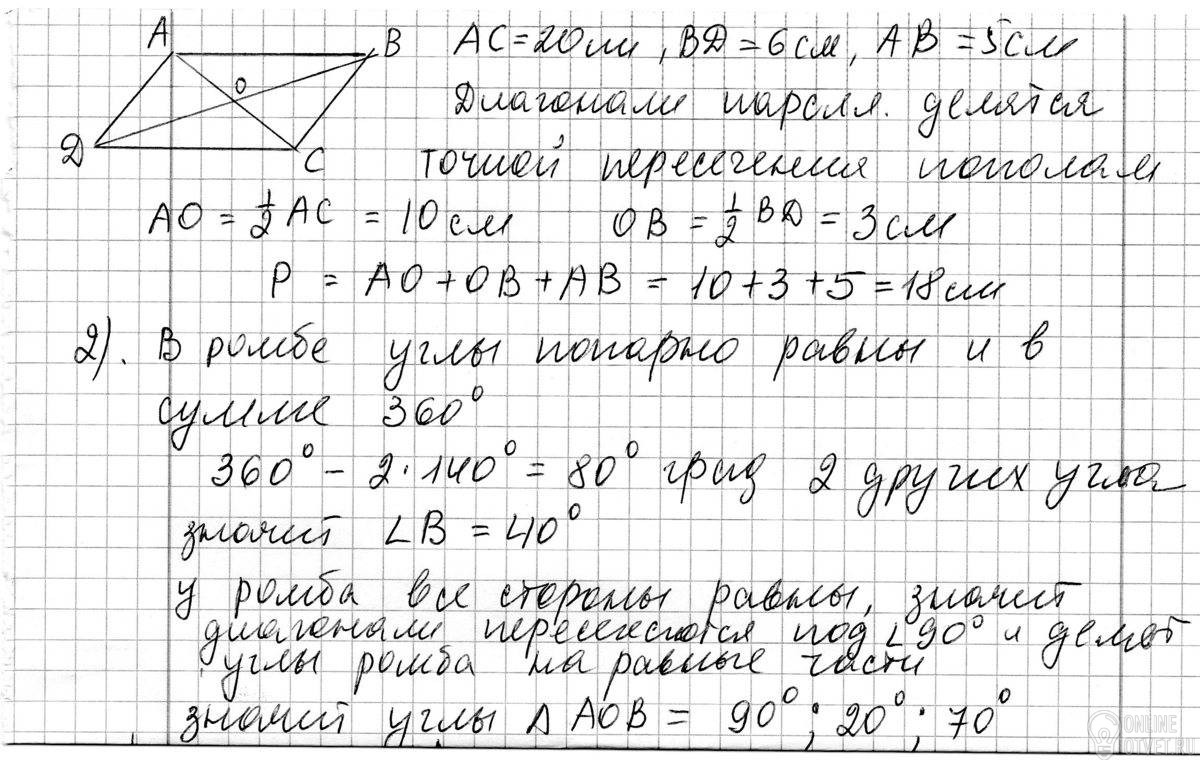 A
B
O
D
C
AC=20см, BD=6см, AB=5см
Диагонали паралл. делятся
точкой пересечения пополам
AO = 1/2 AC = 10см OB = 1/2 BD = 3см
P = AO+OB+AB = 10+3+5=18см
2). В ромбе углы попарно равны и в
сумме 360°
360° - 2·140° = 80° град 2 других угла
значит ∠B = 40°
У ромба все стороны равны, значит
диагонали пересекаются под ∠90° и делят
углы ромба на равные части
значит углы Δ AOB = 90°; 20°; 70°
ONLINE
OTVET.RU